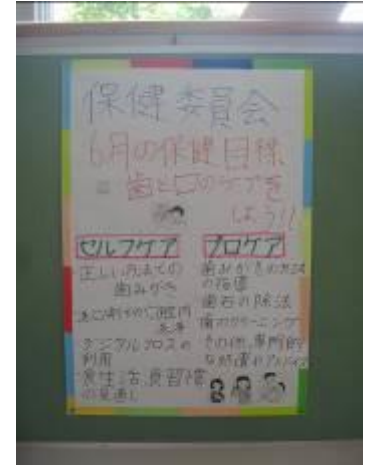 保健委員会
6月の保健目標
歯と口のケアを
しよう!!
セルフケア
正しい方法での
歯みがき
デンタルフロスの
利用
食生活、食習慣
の見直し
プロケア
歯みがきの方法
の指導
歯石の除法
歯のクリーニング
その他、専門的
な処置やアドバイス